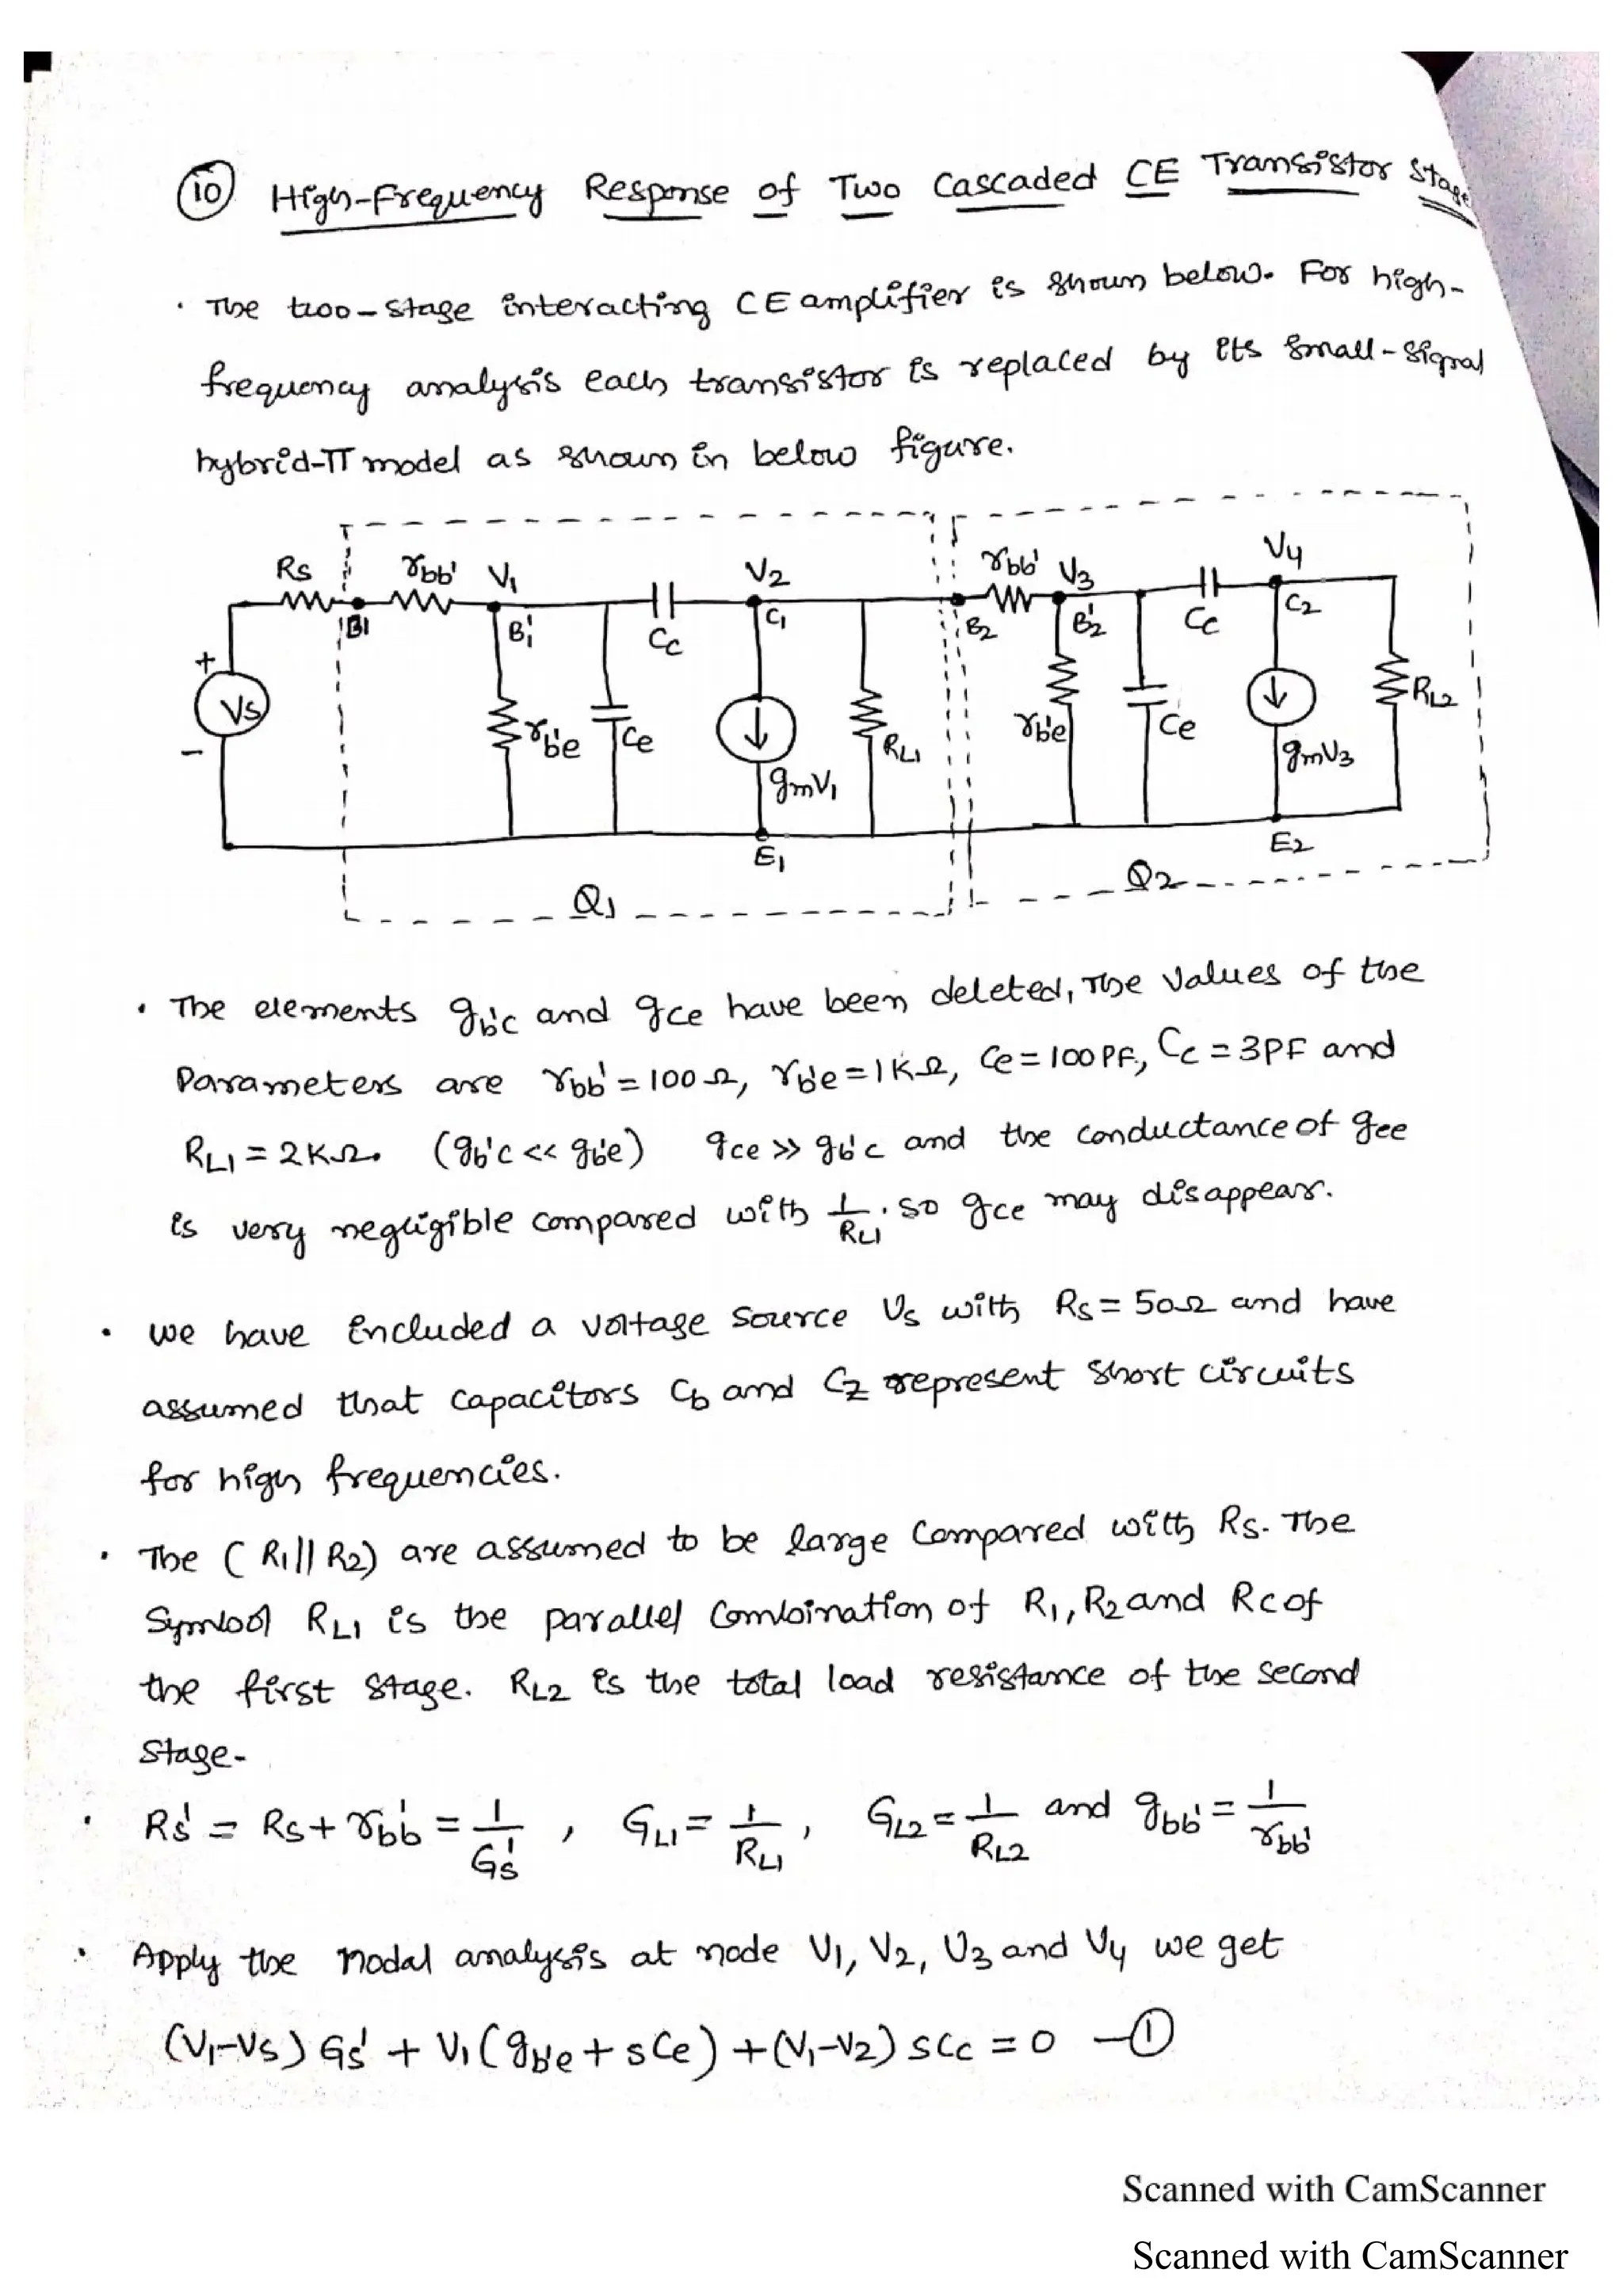 10 High-Frequency Response of Two Cascaded CE Transistor Stage
• The two-stage interacting CE amplifier is shown below. For high-
frequency analysis each transistor is replaced by its small-signal
hybrid-π model as shown in below figure.
Rs rbb' V1 V2 rbb' V3 V4
B1 B1' Cc C1 B2 B2' Cc C2
+ Vs - rb'e Ce gmV1 RL1 rb'e Ce gmV3 RL2
E1 E2
Q1 Q2
• The elements gb'c and gce have been deleted, The values of the
Parameters are rbb' = 100 Ω, rb'e = 1KΩ, Ce = 100 PF, Cc = 3PF and
RL1 = 2KΩ. (gb'c << gb'e) gce >> gb'c and the conductance of gee
is very negligible compared with 1/RL1. so gce may disappear.
• we have included a voltage source Vs with Rs = 50Ω and have
assumed that capacitors Cb and Cz represent short circuits
for high frequencies.
• The (R1 || R2) are assumed to be large compared with Rs. The
Symbol RL1 is the parallel combination of R1, R2 and Rc of
the first stage. RL2 is the total load resistance of the second
stage.
• Rs' = Rs + rbb' = 1/Gs' , GL1 = 1/RL1 , GL2 = 1/RL2 and gbb' = 1/rbb'
• Apply the nodal analysis at node V1, V2, V3 and V4 we get
(V1-Vs) Gs' + V1 (gb'e + sCe) + (V1-V2) sCc = 0 —①
Scanned with CamScanner
Scanned with CamScanner